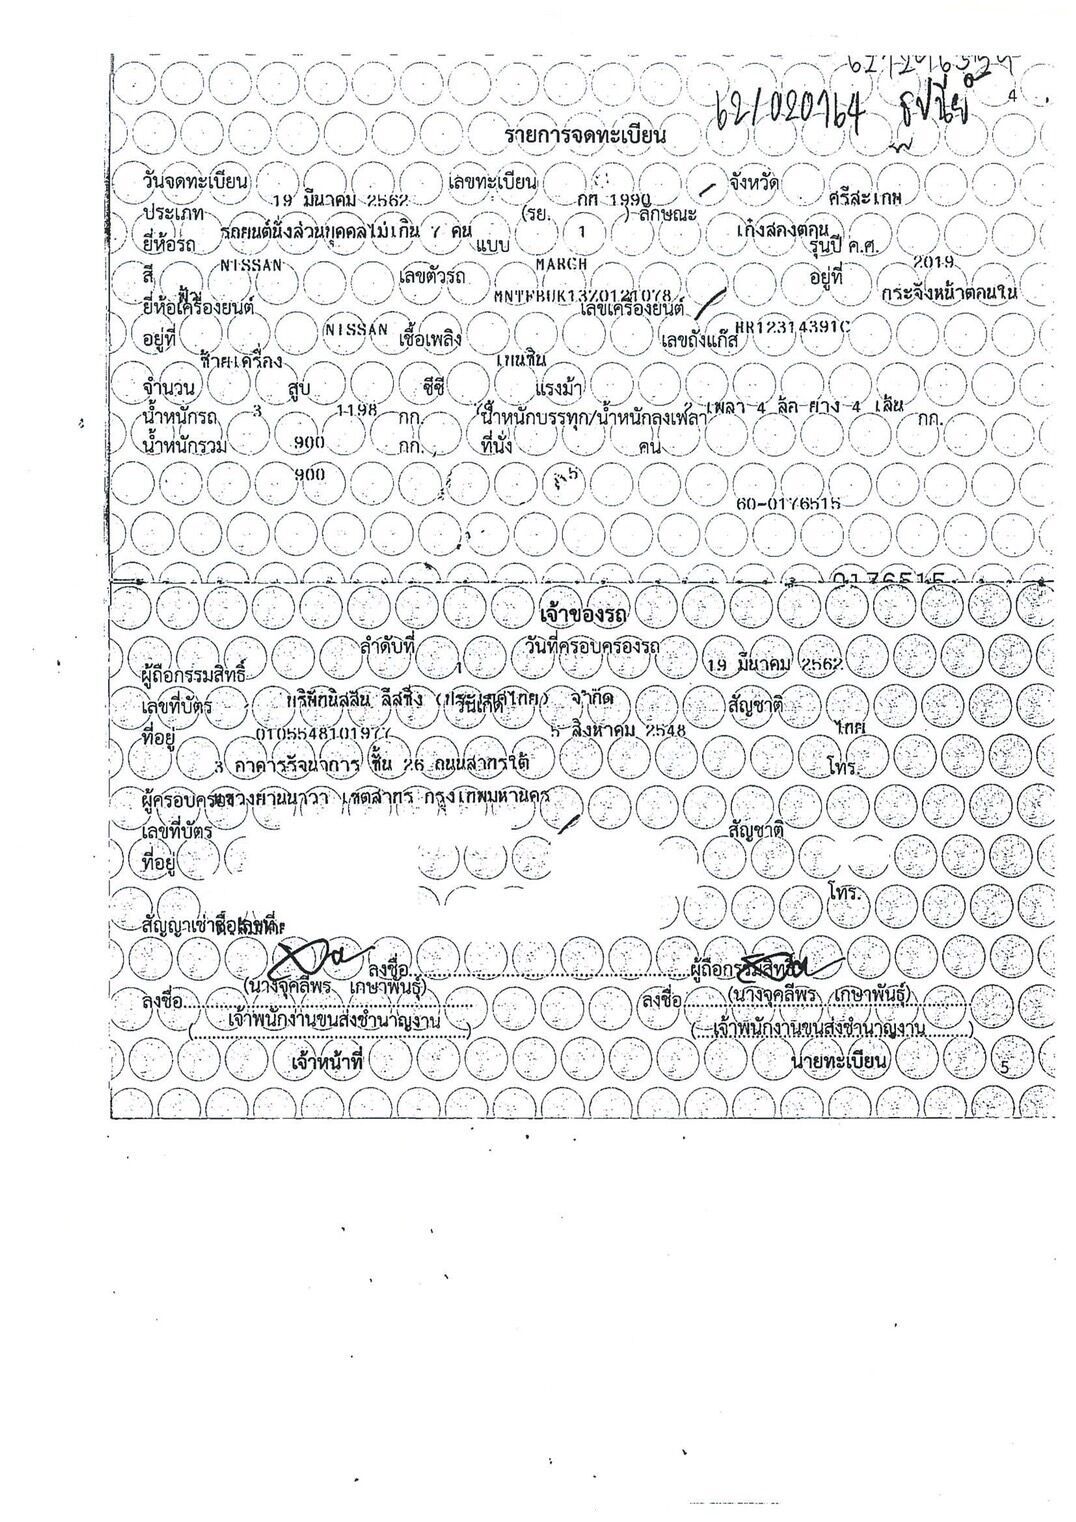 62/020764
4
รายการจดทะเบียน
วันจดทะเบียน 19 มีนาคม 2562 เลขทะเบียน กฅ 1990 จังหวัด ศรีสะเกษ
ประเภท รถยนต์นั่งส่วนบุคคลไม่เกิน 7 คน (รย. 1 ) ลักษณะ เก๋งสองตอน
ยี่ห้อรถ NISSAN แบบ MARCH รุ่นปี ค.ศ. 2019
สี ฟ้า เลขตัวรถ MNTFBUK13Z0121078 อยู่ที่ กระจังหน้าตอนใน
ยี่ห้อเครื่องยนต์ NISSAN เลขเครื่องยนต์ HR12314391C
อยู่ที่ ซ้ายเครื่อง เชื้อเพลิง เบนซิน เลขถังแก๊ส
จำนวน 3 สูบ 1198 ซีซี แรงม้า 2 เพลา 4 ล้อ ยาง 4 เส้น
น้ำหนักรถ 900 กก. น้ำหนักบรรทุก/น้ำหนักลงเพลา กก.
น้ำหนักรวม 900 กก. ที่นั่ง 5 คน
60-0176515
0176515
เจ้าของรถ
ลำดับที่ 1 วันที่ครอบครองรถ 19 มีนาคม 2562
ผู้ถือกรรมสิทธิ์ บริษัทนิสสัน ลีสซิ่ง (ประเทศไทย) จำกัด
เลขที่บัตร 0105548101977 วันเกิด 5 สิงหาคม 2548 สัญชาติ ไทย
ที่อยู่ 3 อาคารรัจนาการ ชั้น 26 ถนนสาทรใต้ โทร.
แขวงยานนาวา เขตสาทร กรุงเทพมหานคร
ผู้ครอบครอง
เลขที่บัตร สัญชาติ
ที่อยู่
โทร.
สัญญาเช่าซื้อเลขที่
ลงชื่อ ผู้ถือกรรมสิทธิ์
(นางจุคลีพร เกษาพันธุ์) (นางจุคลีพร เกษาพันธุ์)
ลงชื่อ ลงชื่อ
(เจ้าพนักงานขนส่งชำนาญงาน) (เจ้าพนักงานขนส่งชำนาญงาน)
เจ้าหน้าที่ นายทะเบียน
5